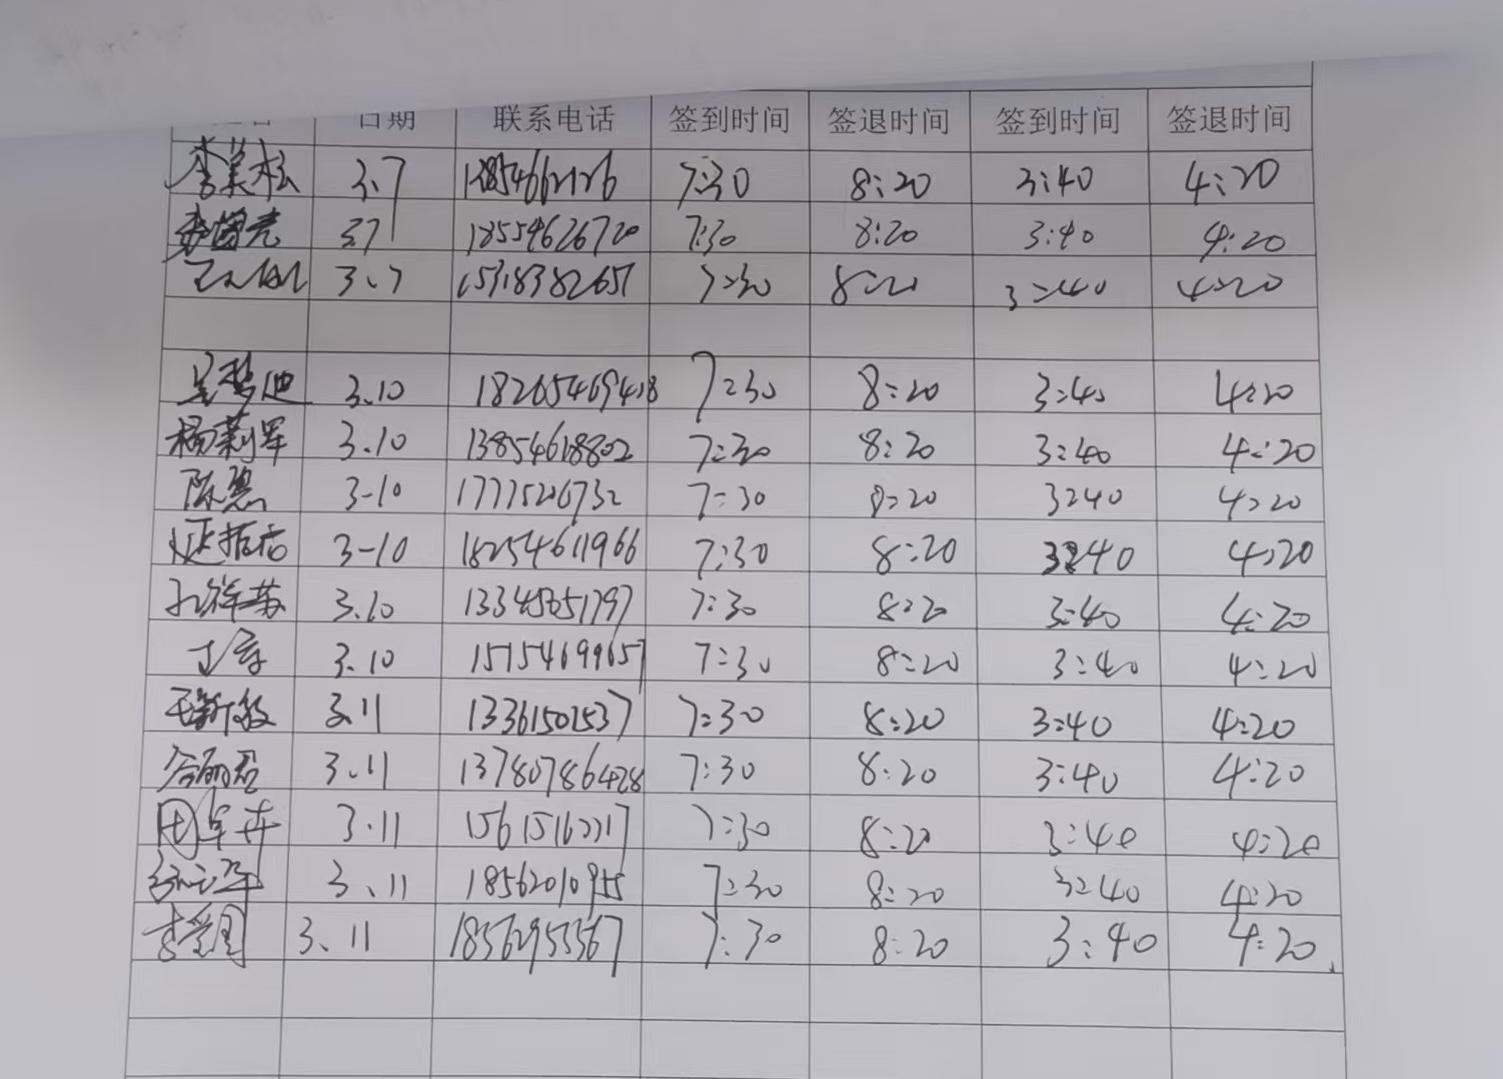 日期 联系电话 签到时间 签退时间 签到时间 签退时间
李美松 3.7 7:30 8:20 3:40 4:20
3.7 18554626720 7:30 8:20 3:40 4:20
3.7 15318382657 7:30 8:20 3:40 4:20
吴梦迪 3.10 7:30 8:20 3:40 4:20
杨莉军 3.10 13854618802 7:30 8:20 3:40 4:20
陈 3-10 7:30 8:20 3:40 4:20
3-10 18254611966 7:30 8:20 3:40 4:20
孔祥英 3.10 7:30 8:20 3:40 4:20
3.10 15154699657 7:30 8:20 3:40 4:20
王新敏 3.11 13361501537 7:30 8:20 3:40 4:20
3.11 13780786428 7:30 8:20 3:40 4:20
3.11 7:30 8:20 3:40 4:20
3.11 7:30 8:20 3:40 4:20
3.11 18562953367 7:30 8:20 3:40 4:20